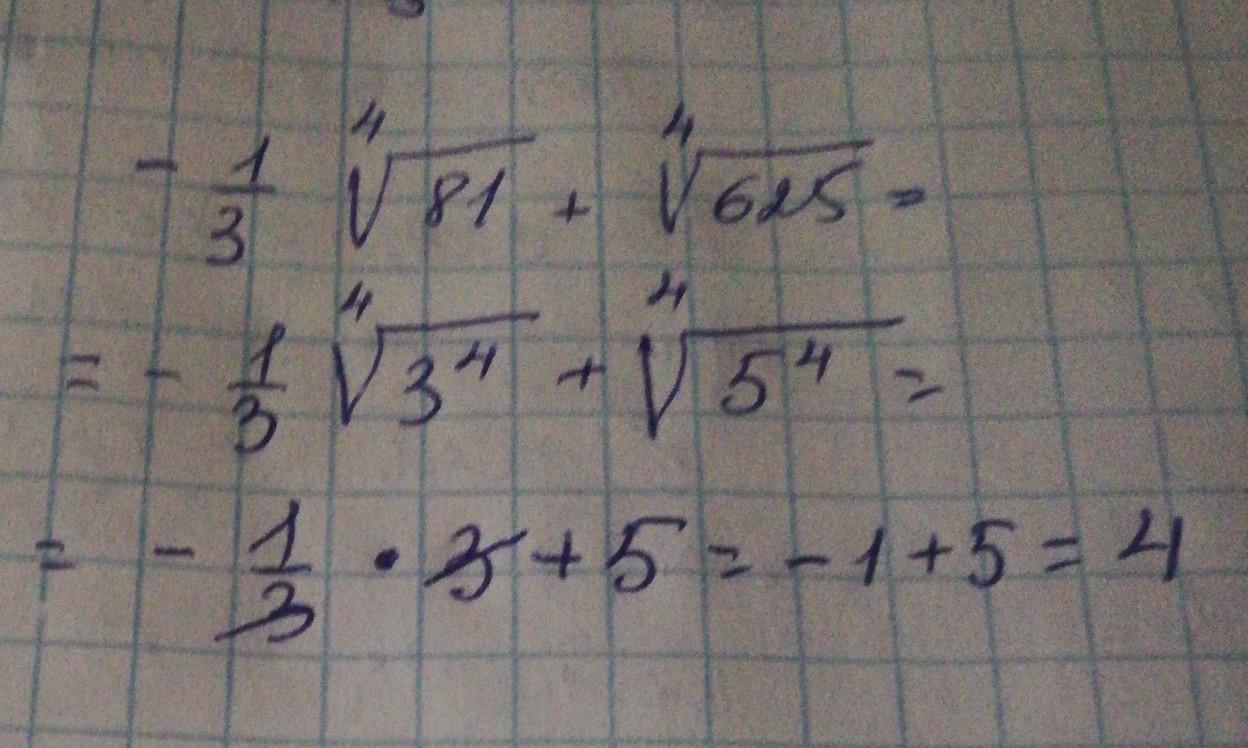 - 1/3 ⁴√81 + ⁴√625 =
= - 1/3 ⁴√3⁴ + ⁴√5⁴ =
= - 1/3 · 3 + 5 = - 1 + 5 = 4